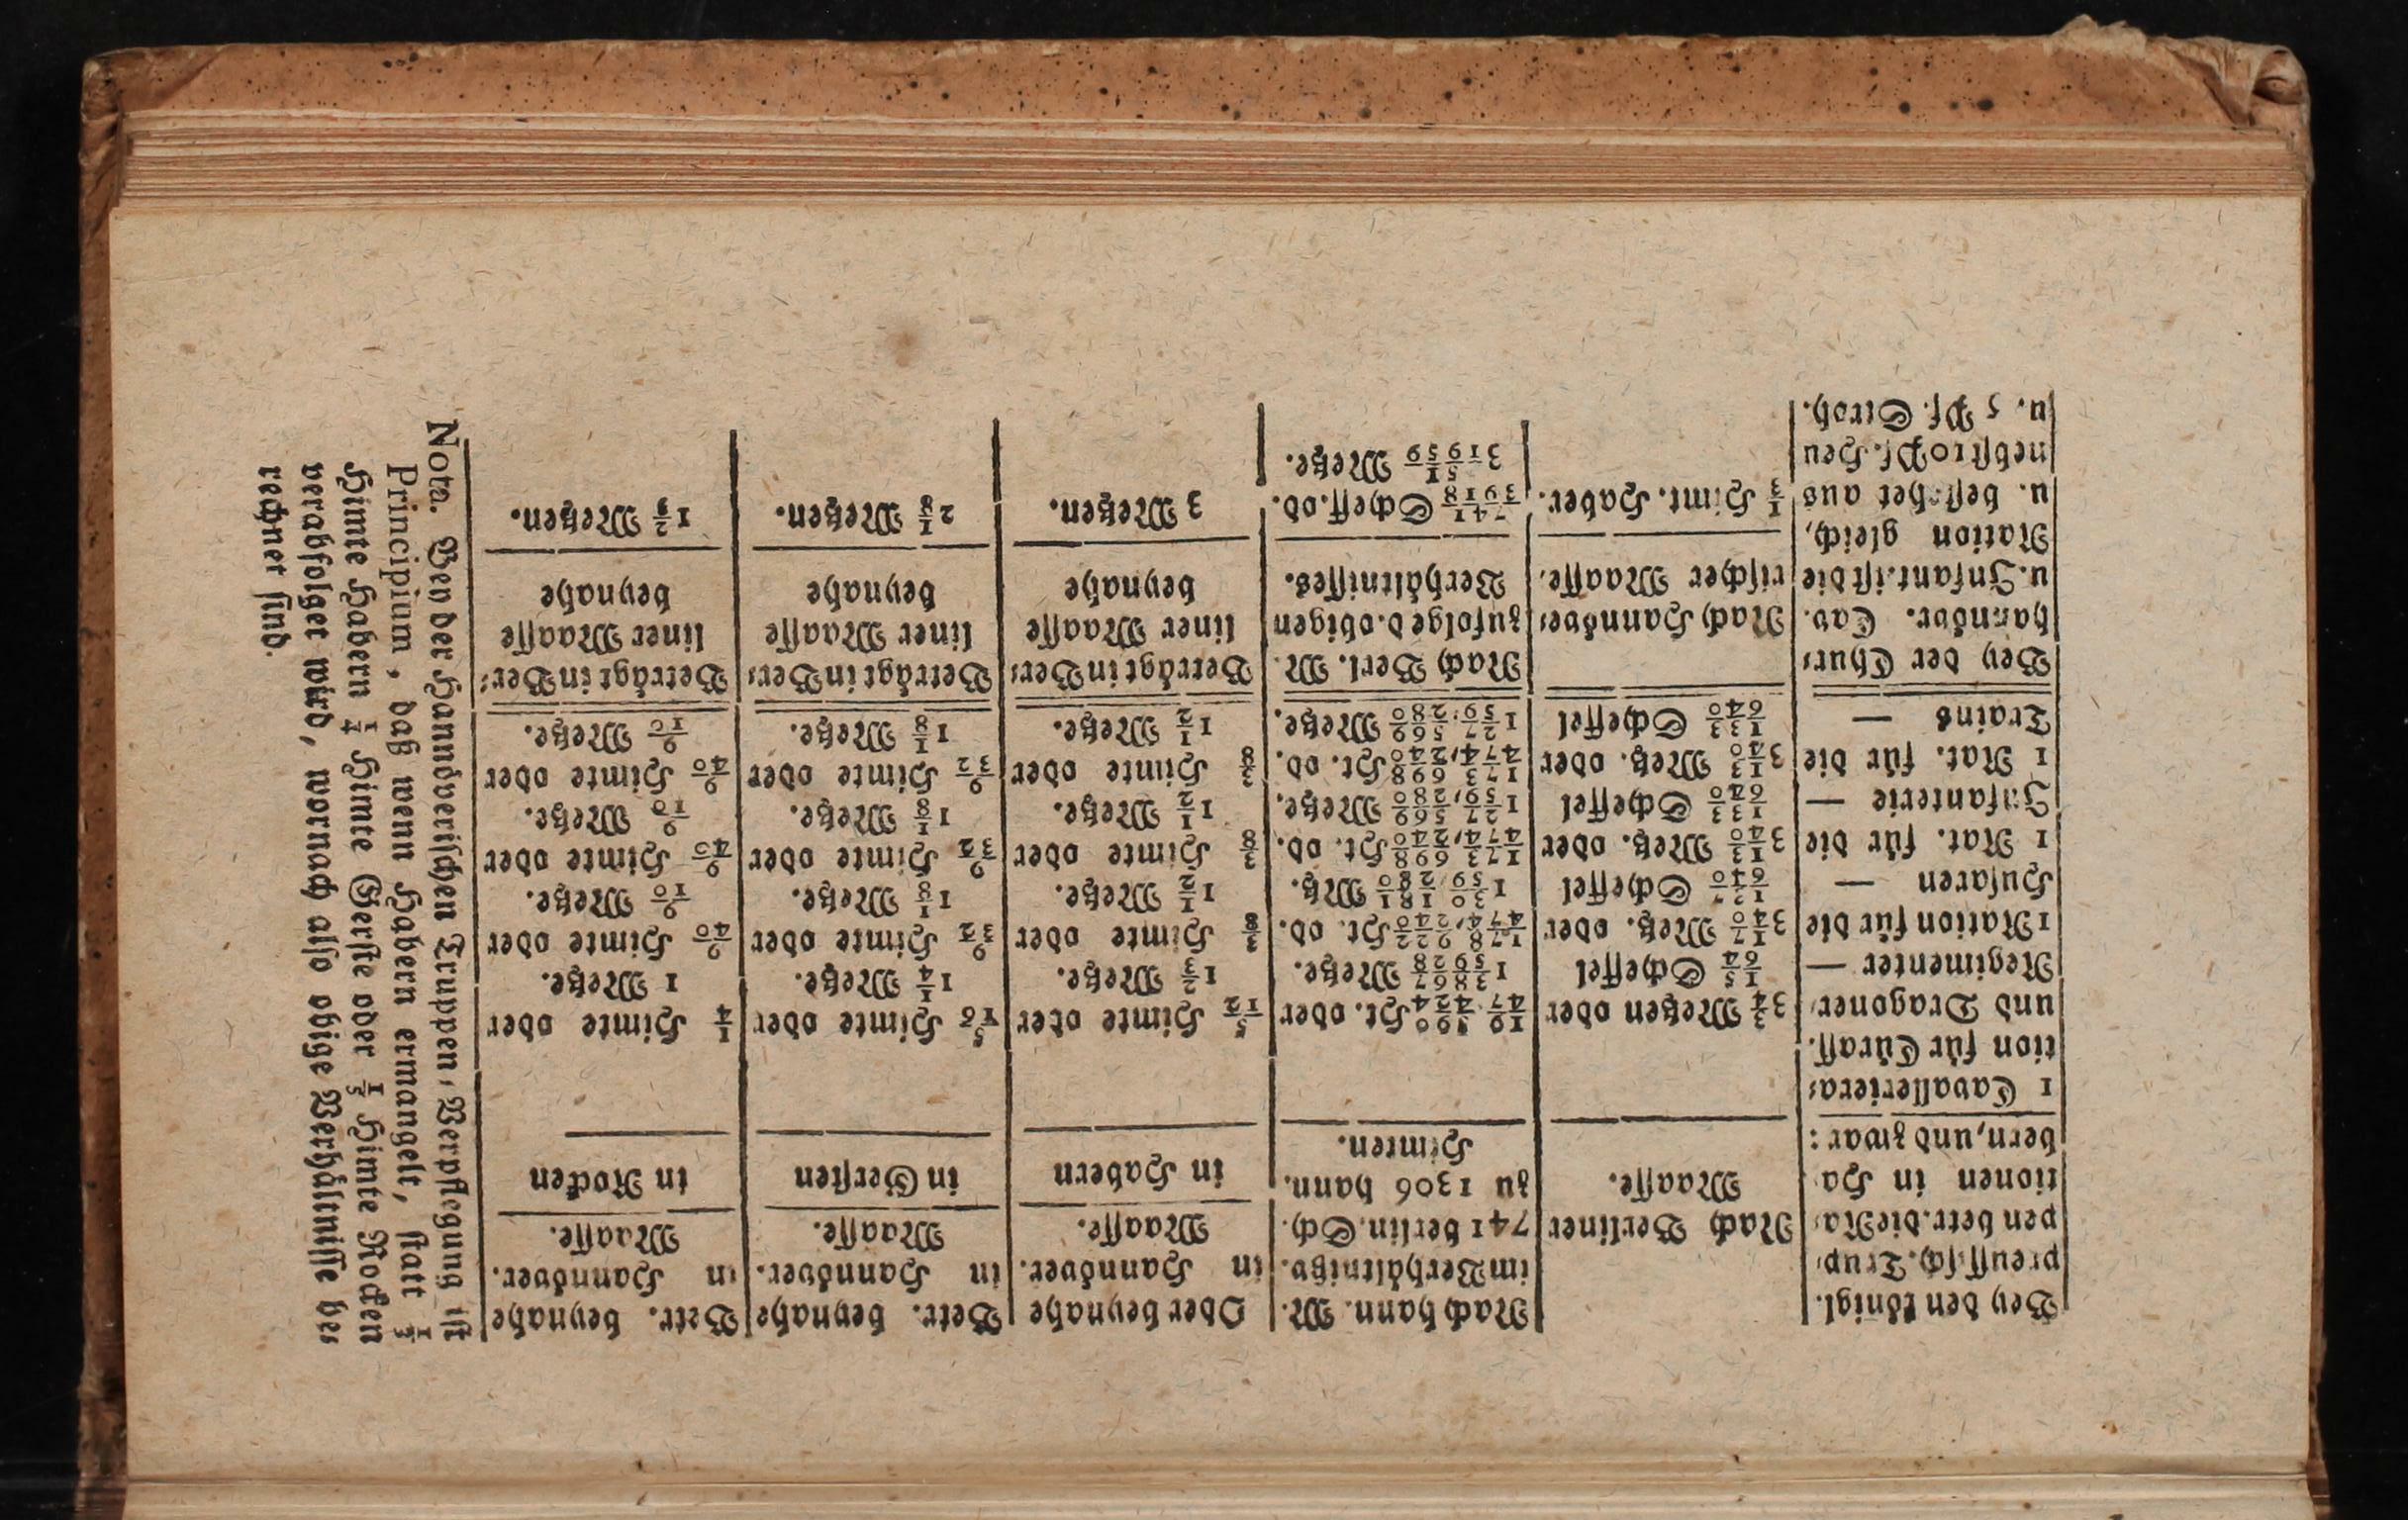 Bey den königl.
preussisch. Trup=
pen betr. die Ra=
tionen in Ha=
bern, und zwar:
1 Cavalleriera=
tion für Cürass.
und Dragoner=
Regimenter —
1 Ration für die
Husaren —
1 Rat. für die
Infanterie —
1 Rat. für die
Trains —
Bey der Chur=
hannövr. Cav.
u. Infant. ist die
Ration gleich,
u. bestehet aus
nebst 10 Pf. Heu
u. 5 Pf. Stroh.
Nach Berliner
Maasse.
3 3/4 Metzen oder
15/64 Scheffel
3 17/40 Metz. oder
137/640 Scheffel
3 13/40 Metz. oder
133/640 Scheffel
3 13/40 Metz. oder
133/640 Scheffel
Nach Hannöve=
rischer Maasse,
1/3 Himt. Haber.
Nach hann. M.
im Verhältniß v.
741 berlin. Sch.
zu 1306 hann.
Himten.
19590/47424 Ht. oder
1 3867/5928 Metze.
178922/474240 Ht. od.
1 30181/59280 Mtz.
173698/474240 Ht. od.
1 27569/59280 Metze.
173698/474240 Ht. od.
1 27569/59280 Metze.
Nach Berl. M
zufolge d. obigen
Verhältnisses.
741/3918 Scheff. od.
3 51/1959 Metze.
Oder beynahe
in Hannöver.
Maasse.
in Habern
5/12 Himte oder
1 2/3 Metze.
3/8 Himte oder
1 1/2 Metze.
3/8 Himte oder
1 1/2 Metze.
3/8 Himte oder
1 1/2 Metze.
Beträgt in Ber=
liner Maasse
beynahe
3 Metzen.
Betr. beynahe
in Hannöver.
Maasse.
in Gersten
5/16 Himte oder
1 1/4 Metze.
9/32 Himte oder
1 1/8 Metze.
9/32 Himte oder
1 1/8 Metze.
9/32 Himte oder
1 1/8 Metze.
Beträgt in Ber=
liner Maasse
beynahe
2 1/8 Metzen.
Betr. beynahe
in Hannöver.
Maasse.
in Rocken
1/4 Himte oder
1 Metze.
9/40 Himte oder
9/10 Metze.
9/40 Himte oder
9/10 Metze.
9/40 Himte oder
9/10 Metze.
Beträgt in Ber=
liner Maasse
beynahe
Metzen.
Nota. Bey der Hannöverischen Truppen=Verpflegung ist
Principium, daß wenn Habern ermangelt, statt 1/3
Himte Habern 1/4 Himte Gerste oder 1/5 Himte Rocken
verabfolget wird, wornach also obige Verhältnisse be=
rechnet sind.